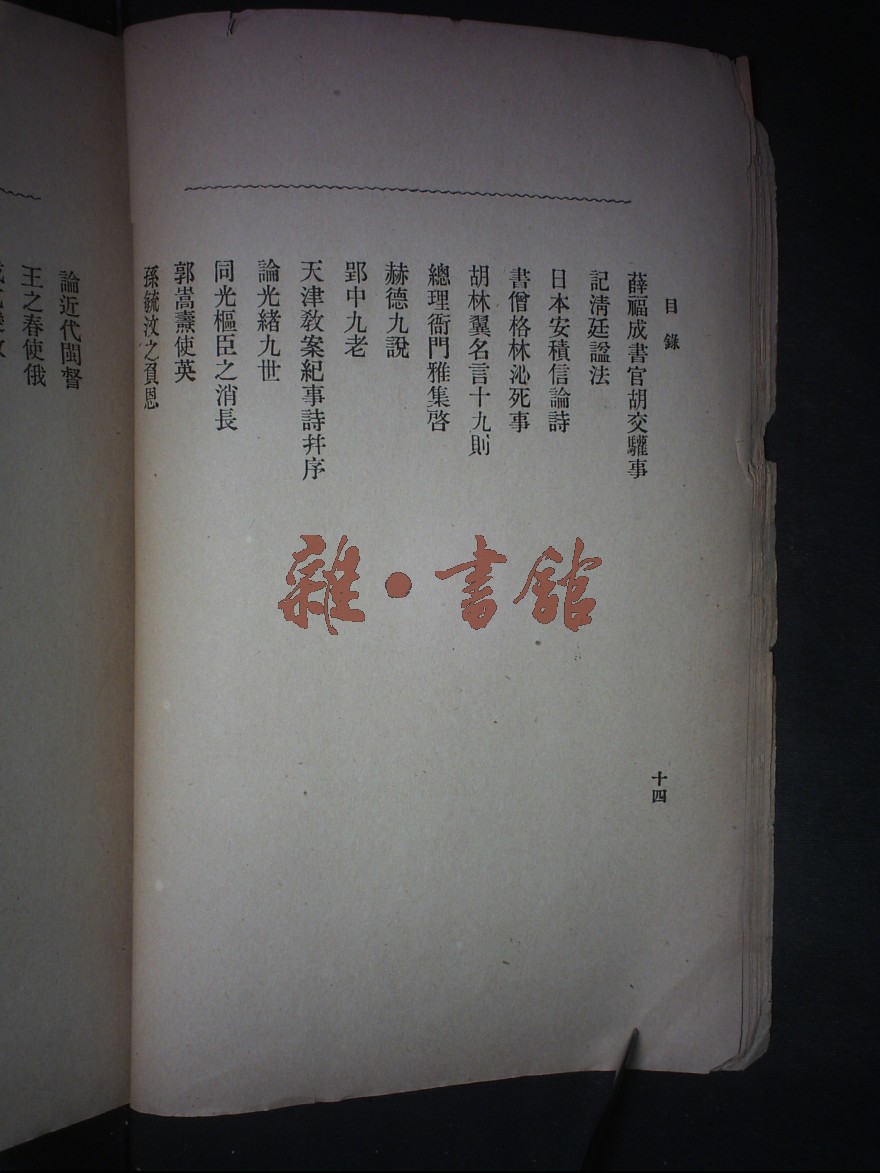 目錄
薛福成書官胡交驩事
記淸廷諡法
日本安積信論詩
書僧格林沁死事
胡林翼名言十九則
總理衙門雅集啓
赫德九說
郢中九老
天津敎案紀事詩幷序
論光緖九世
同光樞臣之消長
郭嵩燾使英
孫毓汶之負恩
十四
論近代閩督
王之春使俄
雜·書館